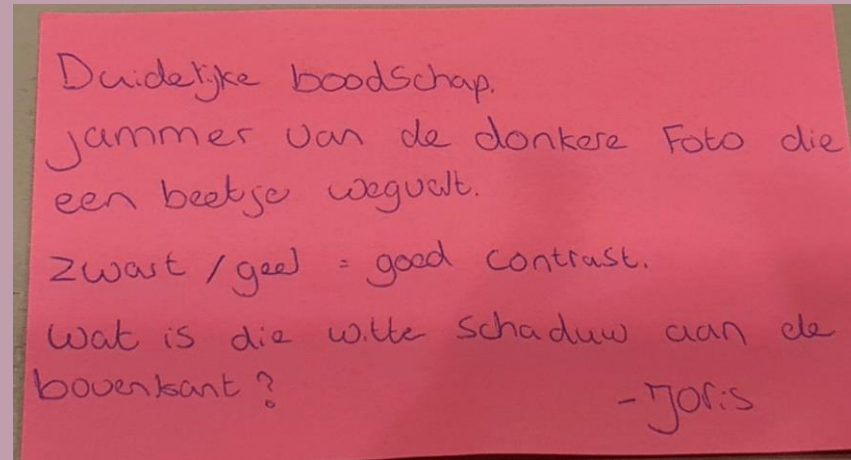 Duidelijke boodschap.
jammer van de donkere Foto die
een beetje wegvalt.
Zwart / geel = goed contrast.
Wat is die witte schaduw aan de
bovenkant?
- Joris